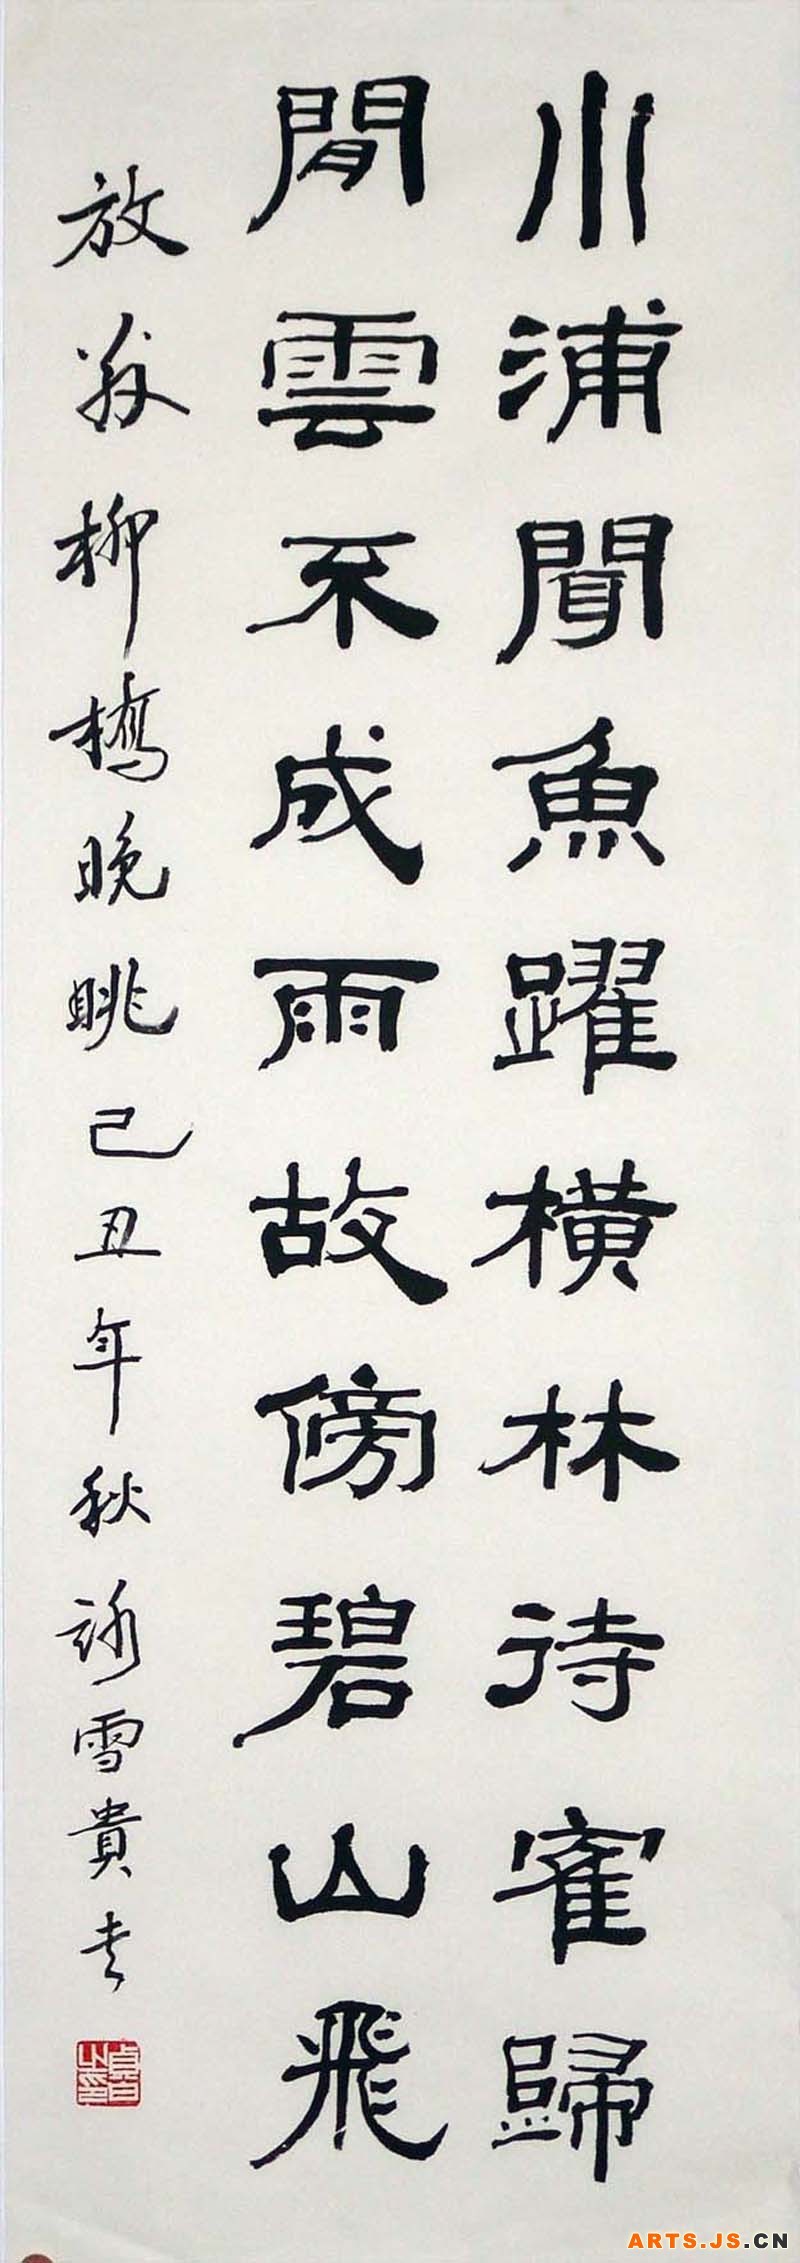 小浦聞魚躍横林待寉歸
閒雲不成雨故傍碧山飛
放翁柳橋晚眺己丑年秋詠雪貴
ARTS.JS.CN